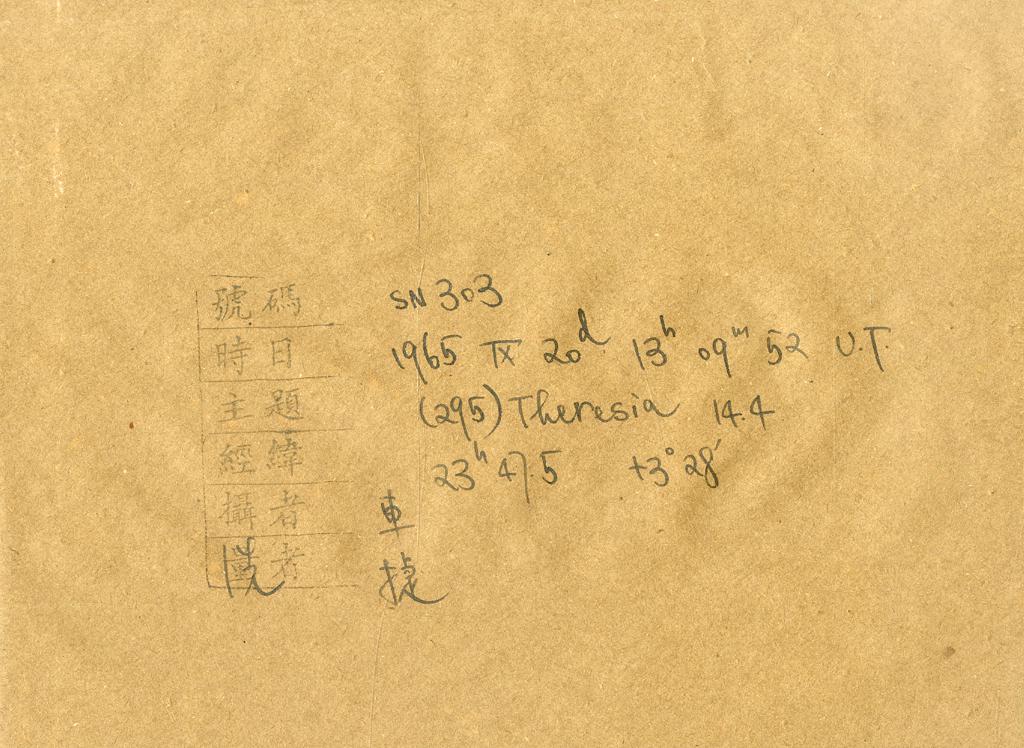 號碼 SN 303
時日 1965 IX 20ᵈ 13ʰ 09ᵐ 52 U.T.
主題 (295) Theresia 14.4
經緯 23ʰ 47.5 +3° 28′
攝者 車
洗者 捷